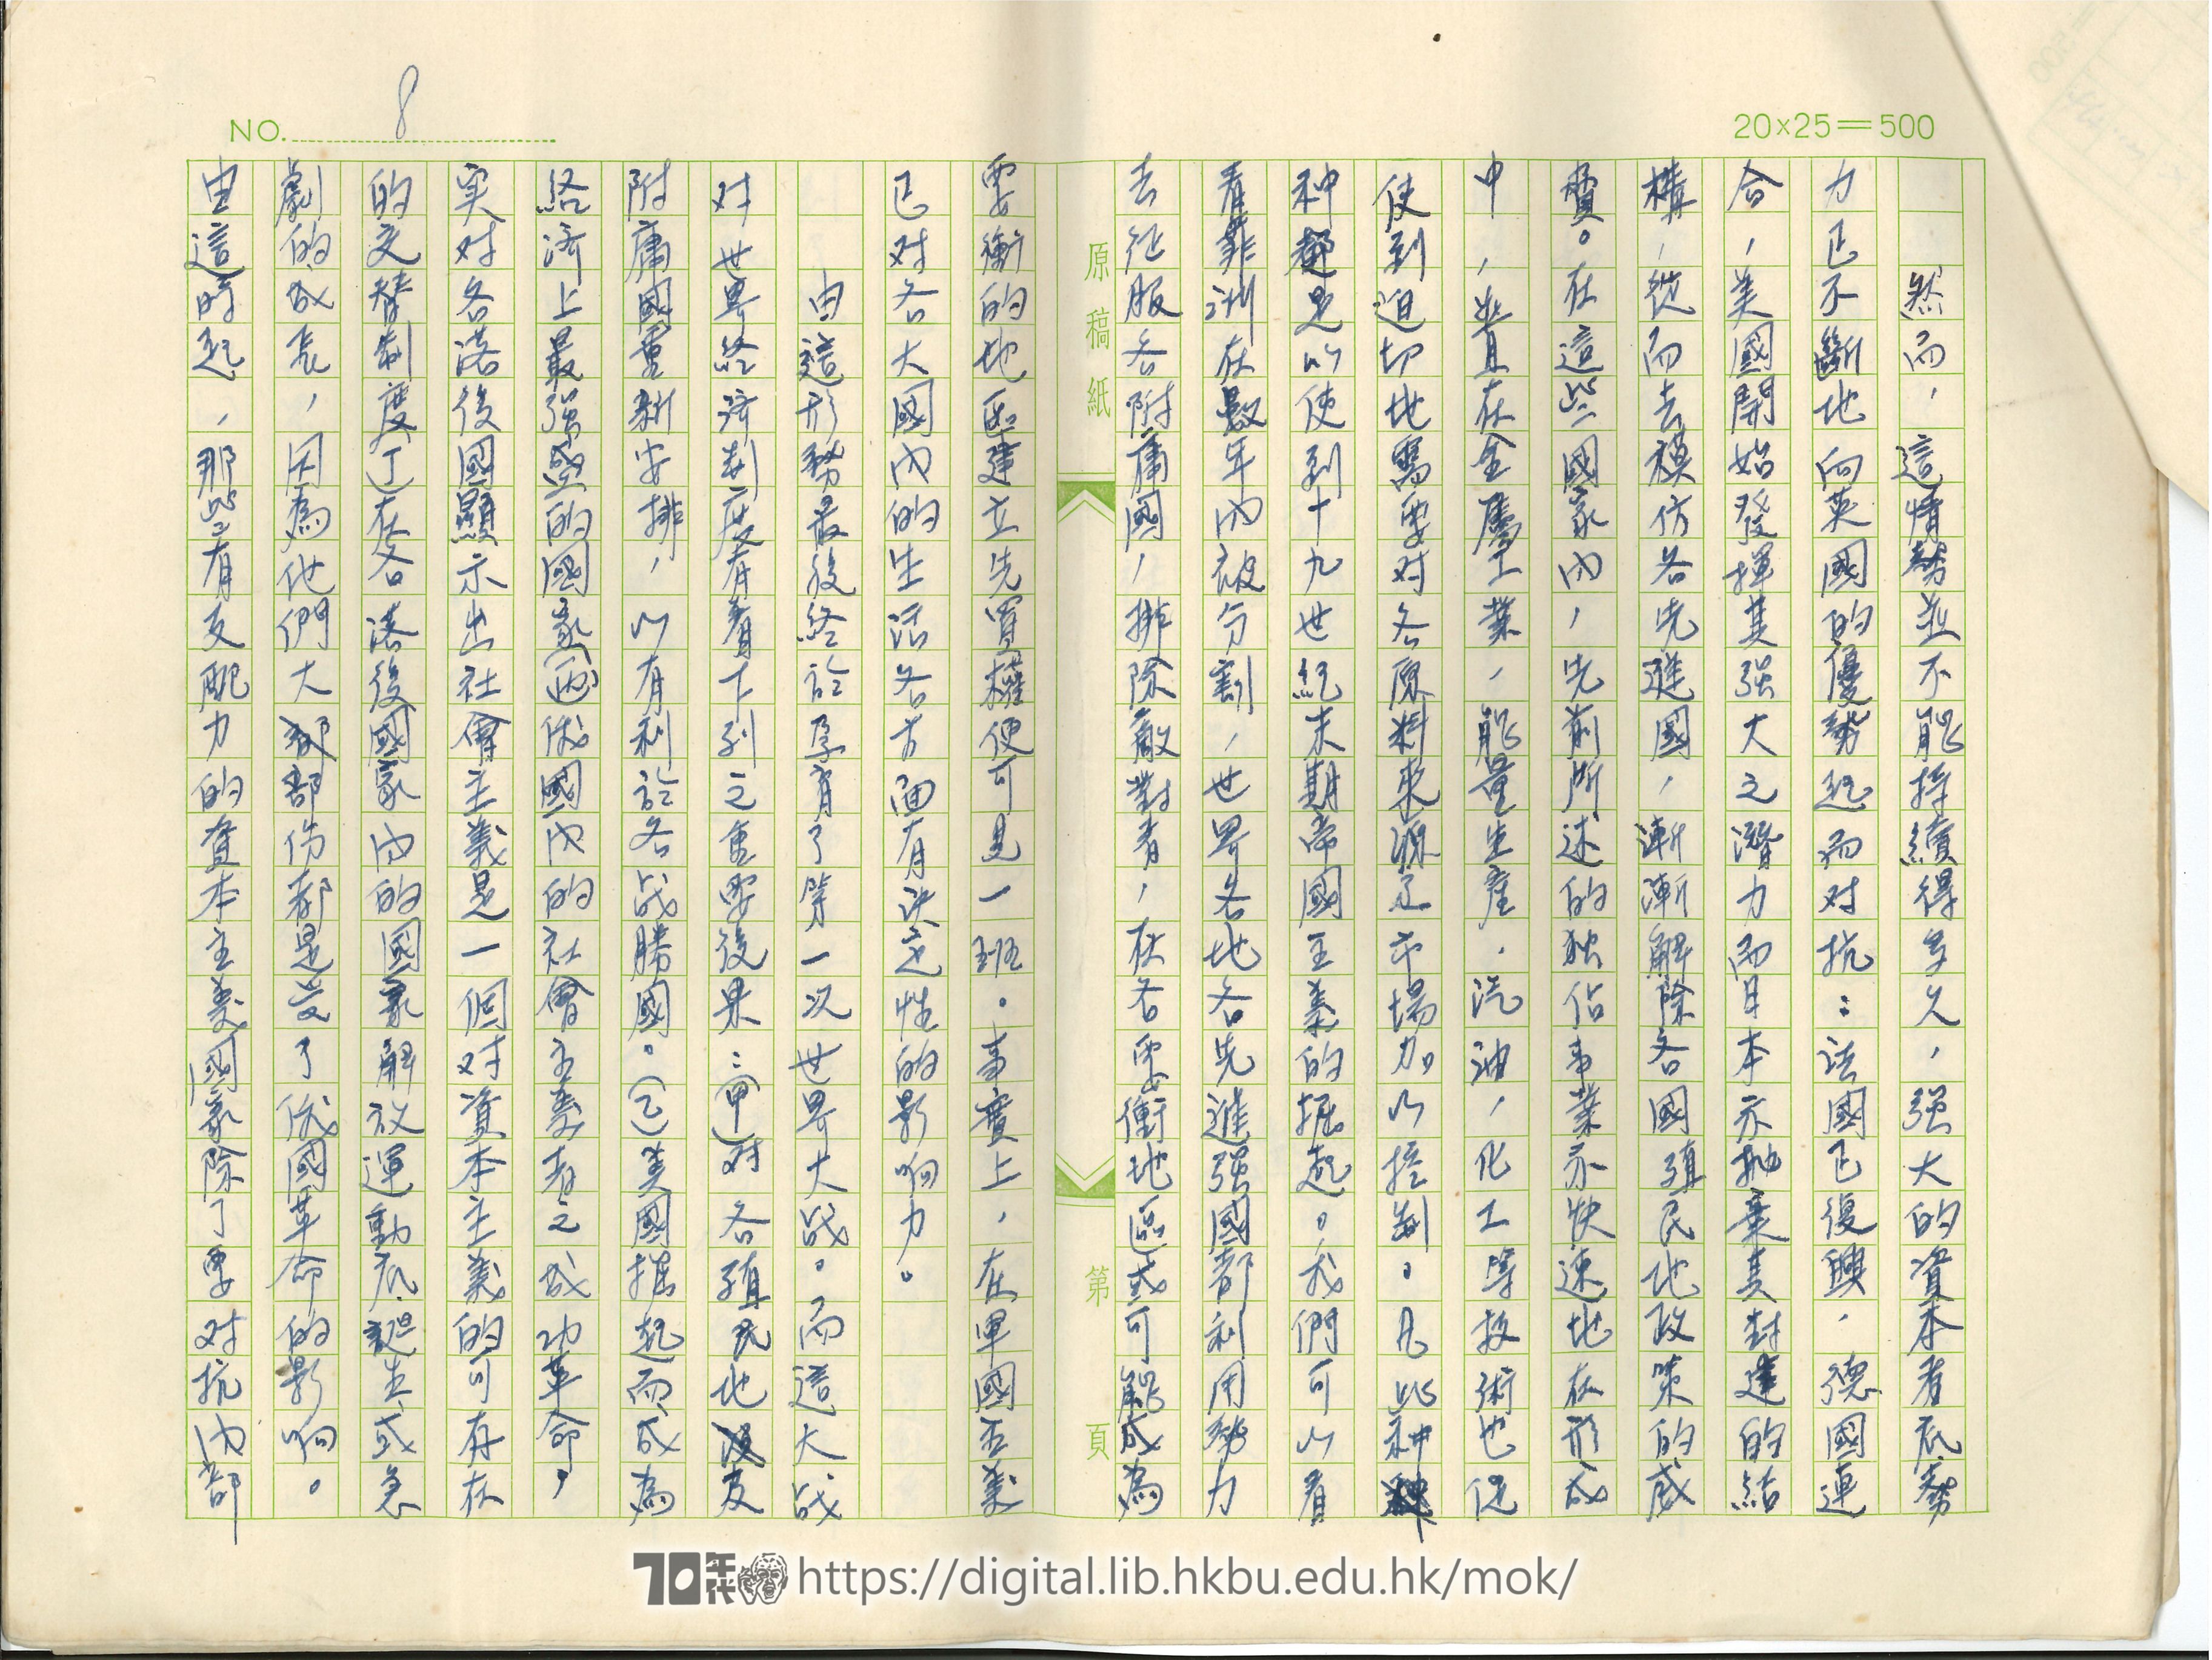 NO. 8
20×25=500
然而，這情勢並不能持續得多久，强大的資本者底勢
力已不斷地向英國的優勢起而对抗：法國已復興．德國連
合，美國開始發揮其强大之潛力而日本亦拋棄其封建的結
構，從而去模仿各先進國，漸漸解除各國殖民地政策的威
脅。在這些國家内，先前所述的独佔事業亦快速地在形成
中，当在金屬工業，能量生產．汽油，化工等技術也促
使到迫切地需要对各原料來源及市場加以控制。凡此种
种都是以使到十九世紀末期帝國主義的掘起。我們可以看
看菲洲在數年内被分割，世界各地各先進强國都利用勢力
去征服各附庸國，排除敵對者，在各要衝地區或可能成為
原稿紙
第 頁
要衝的地區建立先買權便可見一班。事實上，在軍國主義
已对各大國内的生活各方面有決定性的影响力。
由這形勢最後終於孕育了第一次世界大战。而這大战
对世界經濟制度有着下列之重要後果：(甲)对各殖民地及
附庸國重新安排，以有利於各战勝國。(乙)美國掘起而成為
經濟上最强盛的國家(丙)俄國内的社會主義者之成功革命，
实对各落後國顯示出社會主義是一個对資本主義的可存在
的交替制度(丁)在各落後國家内的國家解放運動底誕生或急
劇的成長，因為他們大部份都是受了俄國革命的影响。
由這時起，那些有支配力的資本主義國家除了要对抗内部
70年代 https://digital.lib.hkbu.edu.hk/mok/